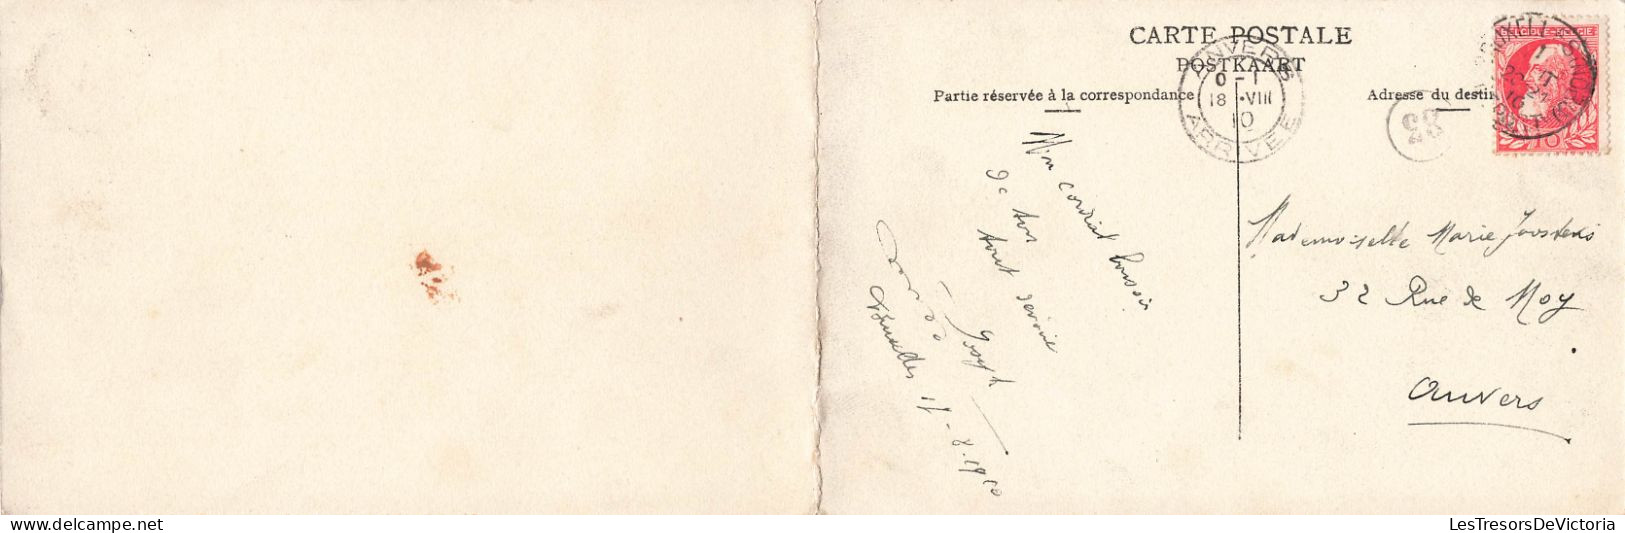 CARTE POSTALE
POSTKAART
Partie réservée à la correspondance
Adresse du destin
ANVERS
0-1
18 VIII
10
ARRIVÉE
BELGIQUE-BELGIË
10
Mon cordial bonsoir
et ton
tout
Joseph
Bruxelles 17-8-1910
Mademoiselle Marie Joostens
32 Rue de Moy
Anvers
LesTresorsDeVictoria
www.delcampe.net